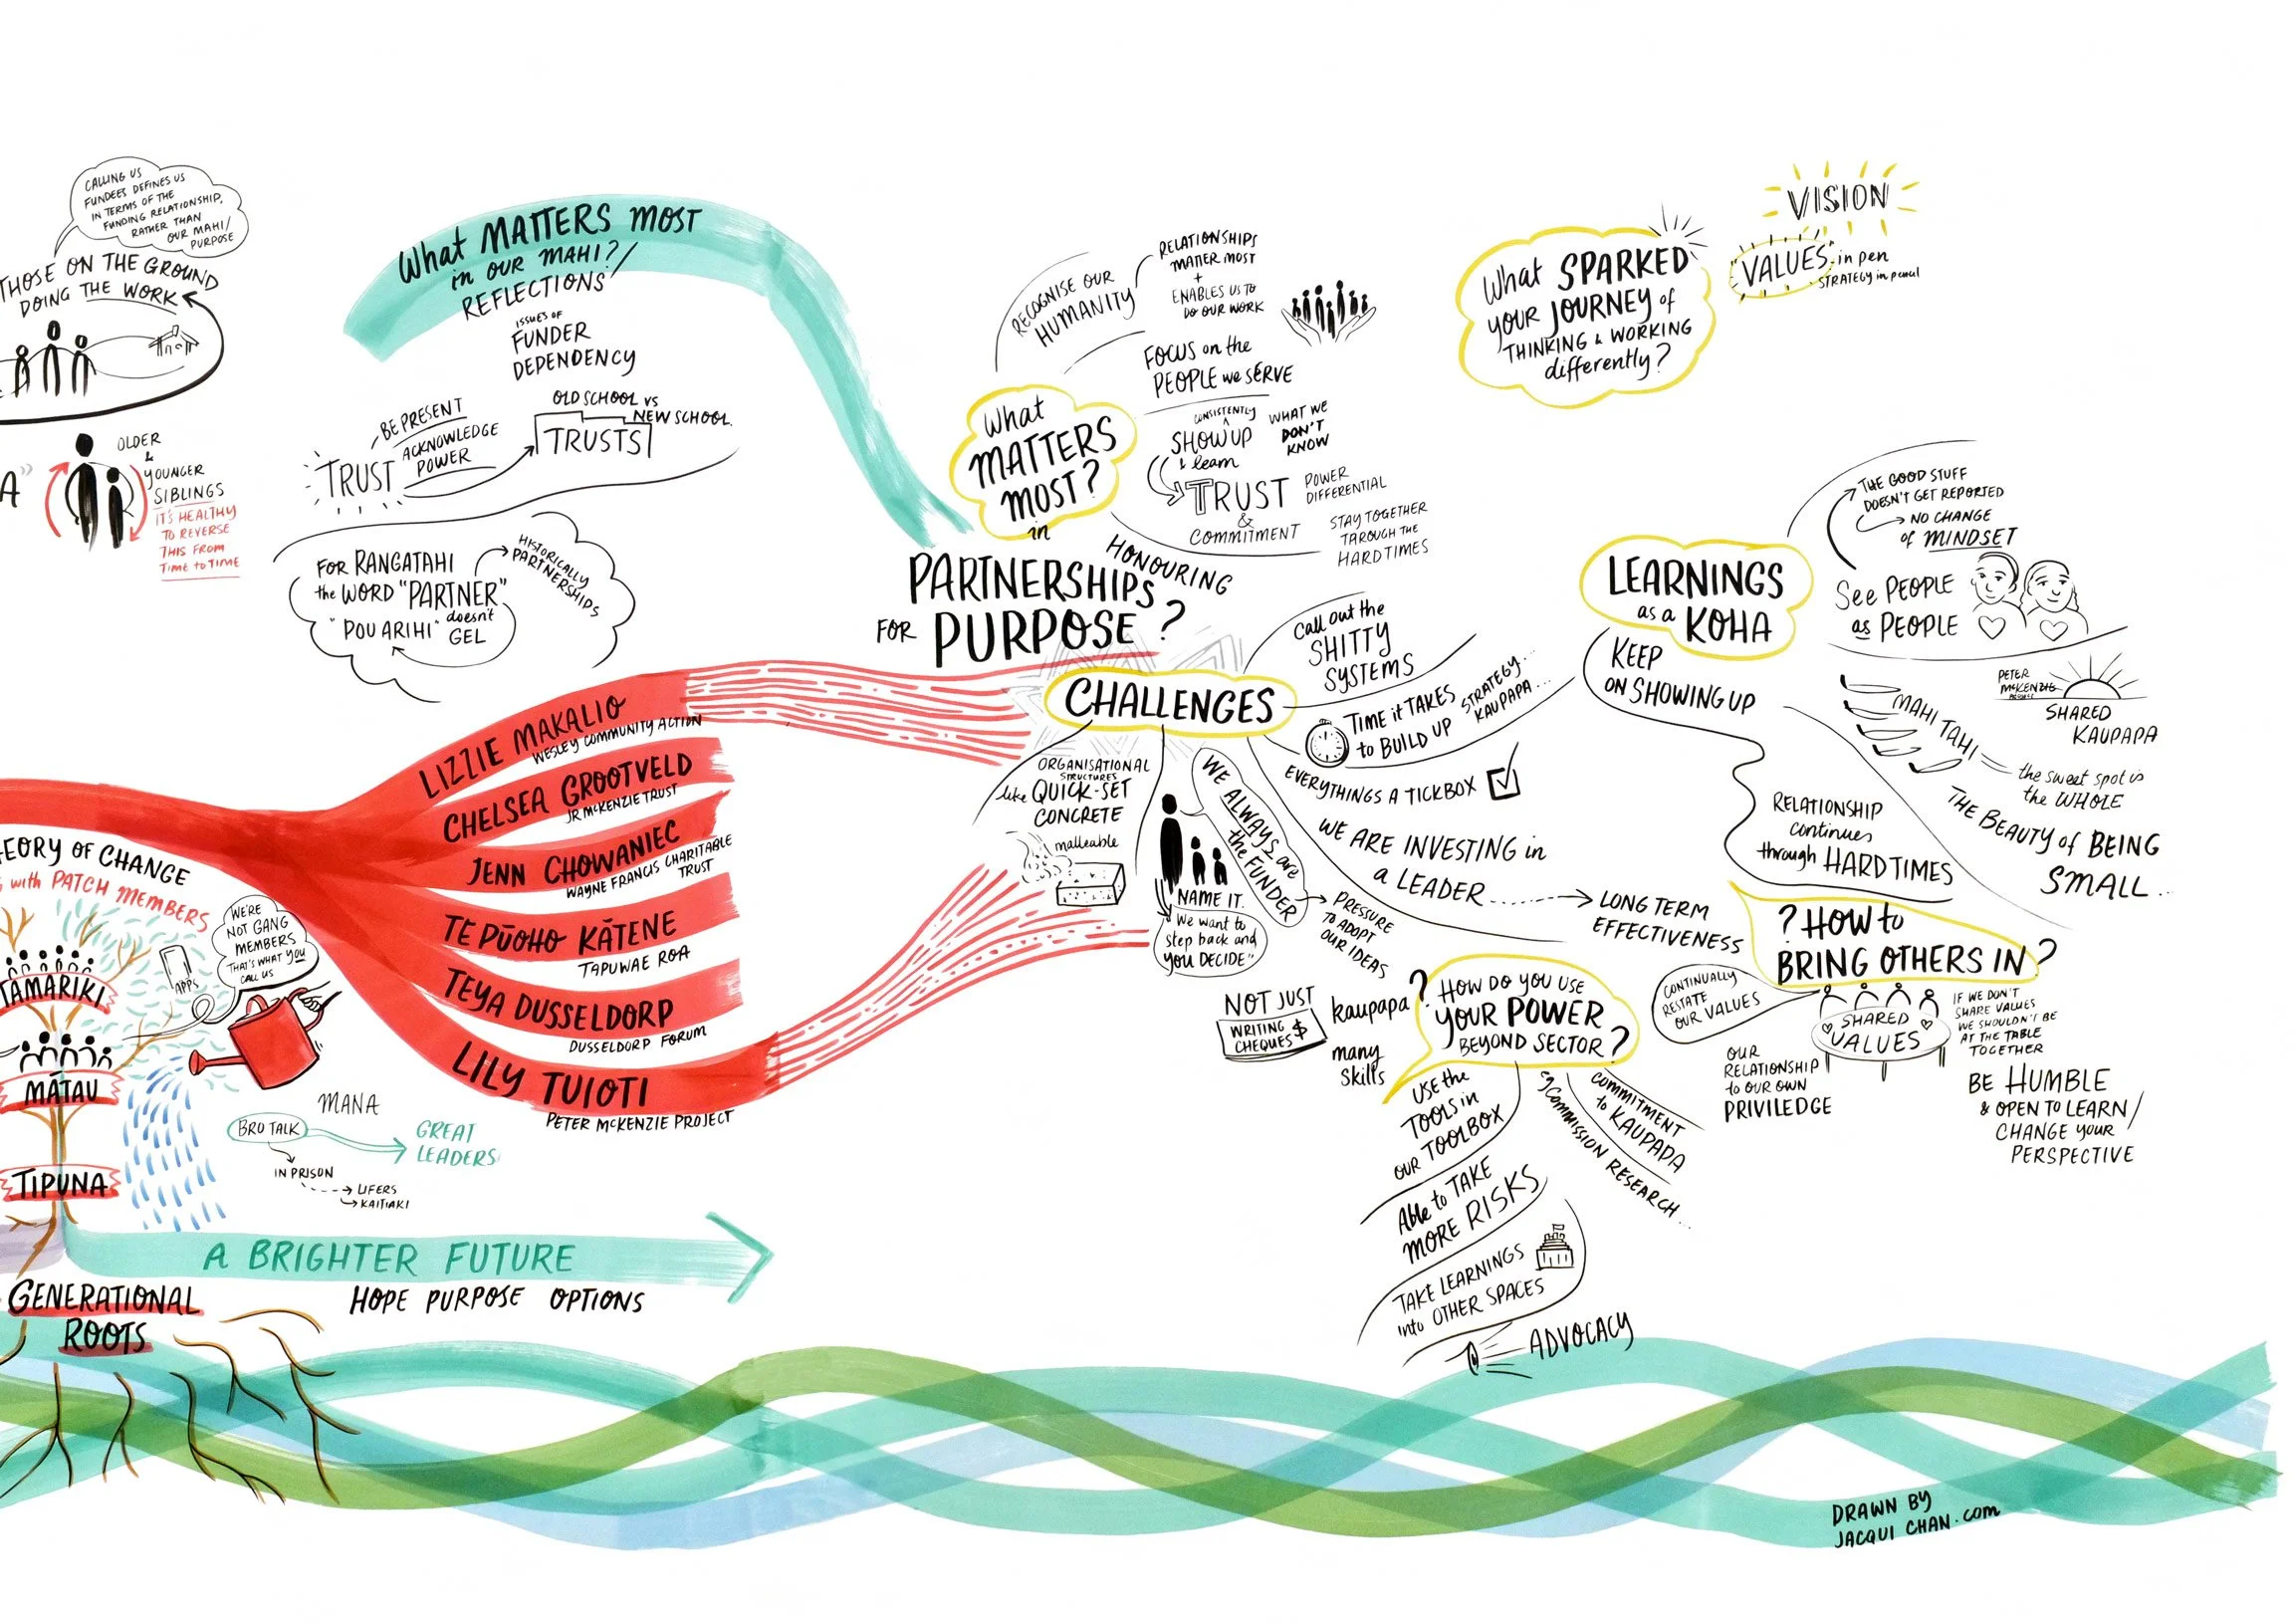 CALLING US
FUNDEES DEFINES US
IN TERMS OF THE
FUNDING RELATIONSHIP,
RATHER THAN
OUR MAHI/
PURPOSE
THOSE ON THE GROUND
DOING THE WORK
A"
OLDER
&
YOUNGER
SIBLINGS
IT'S HEALTHY
TO REVERSE
THIS FROM
TIME to TIME
What MATTERS MOST
in OUR MAHI?
REFLECTIONS
ISSUES OF
FUNDER
DEPENDENCY
BE PRESENT
ACKNOWLEDGE
POWER
TRUST
OLD SCHOOL VS
NEW SCHOOL.
TRUSTS
FOR RANGATAHI
the WORD "PARTNER"
doesn't
GEL
"POU ARIHI"
HISTORICALLY
PARTNERSHIPS
LIZZIE MAKALIO
WESLEY COMMUNITY ACTION
CHELSEA GROOTVELD
JR McKENZIE TRUST
JENN CHOWANIEC
WAYNE FRANCIS CHARITABLE
TRUST
TE PŪOHO KĀTENE
TAPUWAE ROA
TEYA DUSSELDORP
DUSSELDORP FORUM
LILY TUIOTI
PETER McKENZIE PROJECT
EORY OF CHANGE
with PATCH MEMBERS
WE'RE
NOT GANG
MEMBERS
THAT'S WHAT YOU
CALL US
APPS
TAMARIKI
MĀTAU
TIPUNA
MANA
BRO TALK
GREAT
LEADERS
IN PRISON
LIFERS
KAITIAKI
A BRIGHTER FUTURE
HOPE PURPOSE OPTIONS
GENERATIONAL
ROOTS
What
MATTERS
MOST?
in
PARTNERSHIPS
FOR PURPOSE?
RECOGNISE OUR
HUMANITY
RELATIONSHIPS
MATTER MOST
+
ENABLES US TO
DO OUR WORK
FOCUS on the
PEOPLE we SERVE
CONSISTENTLY
SHOW UP
& learn
WHAT WE
DON'T
KNOW
TRUST
&
COMMITMENT
POWER
DIFFERENTIAL
STAY TOGETHER
TAROUGH THE
HARD TIMES
HONOURING
CHALLENGES
Call out the
SHITTY
SYSTEMS
TIME it TAKES
to BUILD UP
STRATEGY...
KAUPAPA...
EVERYTHINGS A TICKBOX
WE ARE INVESTING in
a LEADER
LONG TERM
EFFECTIVENESS
ORGANISATIONAL
STRUCTURES
like QUICK-SET
CONCRETE
malleable
WE ALWAYS are
the FUNDER
NAME IT.
"We want to
step back and
you DECIDE"
PRESSURE
TO ADOPT
OUR IDEAS
What SPARKED
your JOURNEY of
THINKING & WORKING
differently?
VISION
VALUES in pen
STRATEGY in pencil
LEARNINGS
as a KOHA
THE GOOD STUFF
DOESN'T GET REPORTED
NO CHANGE
of MINDSET
See PEOPLE
as PEOPLE
KEEP
ON SHOWING UP
PETER
McKENZIE
PROJECT
SHARED
KAUPAPA
MAHI TAHI
the sweet spot is
the WHOLE
THE BEAUTY of BEING
SMALL...
RELATIONSHIP
continues
through HARD TIMES
? HOW to
BRING OTHERS IN?
CONTINUALLY
RESTATE
OUR VALUES
SHARED
VALUES
IF WE DON'T
SHARE VALUES
WE SHOULDN'T BE
AT THE TABLE
TOGETHER
OUR
RELATIONSHIP
to OUR OWN
PRIVILEDGE
BE HUMBLE
& OPEN TO LEARN/
CHANGE your
PERSPECTIVE
NOT JUST
WRITING
CHEQUES $
kaupapa
many
skills
? HOW DO YOU USE
YOUR POWER
BEYOND SECTOR?
USE the
TOOLS in
OUR TOOLBOX
Able to TAKE
MORE RISKS
TAKE LEARNINGS
into OTHER SPACES
ADVOCACY
eg Commission RESEARCH...
COMMITMENT
to KAUPAPA
DRAWN BY
JACQUI CHAN.com